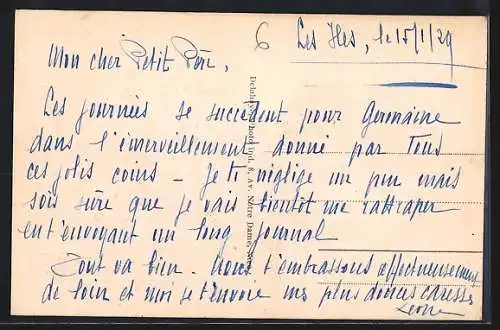 6
Les Iles, le 15/1/29
Mon cher Petit Père,
Ces journées se succèdent pour Germaine
dans l'émerveillement donné par tous
ces jolis coins - Je te néglige un peu mais
sois sûre que je vais bientôt me rattraper
en t'envoyant un long journal
Tout va bien. Nous t'embrassons affectueusement
de loin et moi je t'envoie mes plus douces caresses
Léone
8, Av. Notre Dame,